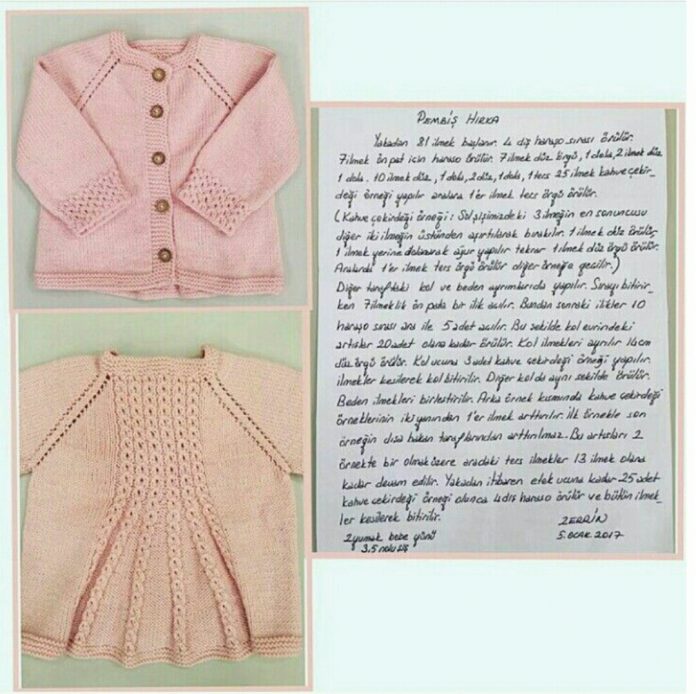 PEMBİŞ HIRKA
Yakadan 81 ilmek başlanır. 4 diş haraşo sırası örülür.
7 ilmek ön pat için haraşo örülür. 7 ilmek düz örgü, 1 dola, 2 ilmek düz
1 dola. 10 ilmek düz, 1 dola, 2 düz, 1 dola, 1 ters 25 ilmek kahve çekir_
deği örneği yapılır aralara 1'er ilmek ters örgü örülür.
(Kahve çekirdeği örneği: Sol şişimizdeki 3 ilmeğin en sonuncusu
diğer iki ilmeğin üstünden aşırtılarak bırakılır. 1 ilmek düz örülür
1 ilmek yerine dolanarak ajur yapılır tekrar 1 ilmek düz örgü örülür.
Aralarda 1'er ilmek ters örgü örülür diğer örneğe geçilir.)
Diğer taraftaki kol ve beden ayrımlarıda yapılır. Sırayı bitirir_
ken 7 ilmeklik ön pada bir ilik açılır. Bundan sonraki ilikler 10
haraşo sırası ara ile 5 adet açılır. Bu şekilde kol evindeki
artışlar 20 adet olana kadar örülür. Kol ilmekleri ayrılır 14 cm
düz örgü örülür. Kol ucuna 3 adet kahve çekirdeği örneği yapılır.
ilmekler kesilerek kol bitirilir. Diğer kol da aynı şekilde örülür.
Beden ilmekleri birleştirilir. Arka örnek kısmında kahve çekirdeği
örneklerinin iki yanından 1'er ilmek arttırılır. İlk örnekle son
örneğin dışa bakan taraflarından arttırılmaz. Bu artışları 2
örnekte bir olmak üzere aradaki ters ilmekler 13 ilmek olana
kadar devam edilir. Yakadan itibaren etek ucuna kadar 25 adet
kahve çekirdeği örneği olunca 4 diş haraşo örülür ve bütün ilmek_
ler kesilerek bitirilir.
ZERRİN
2 yumak bebe yünü
5.OCAK.2017
3,5 nolu şiş